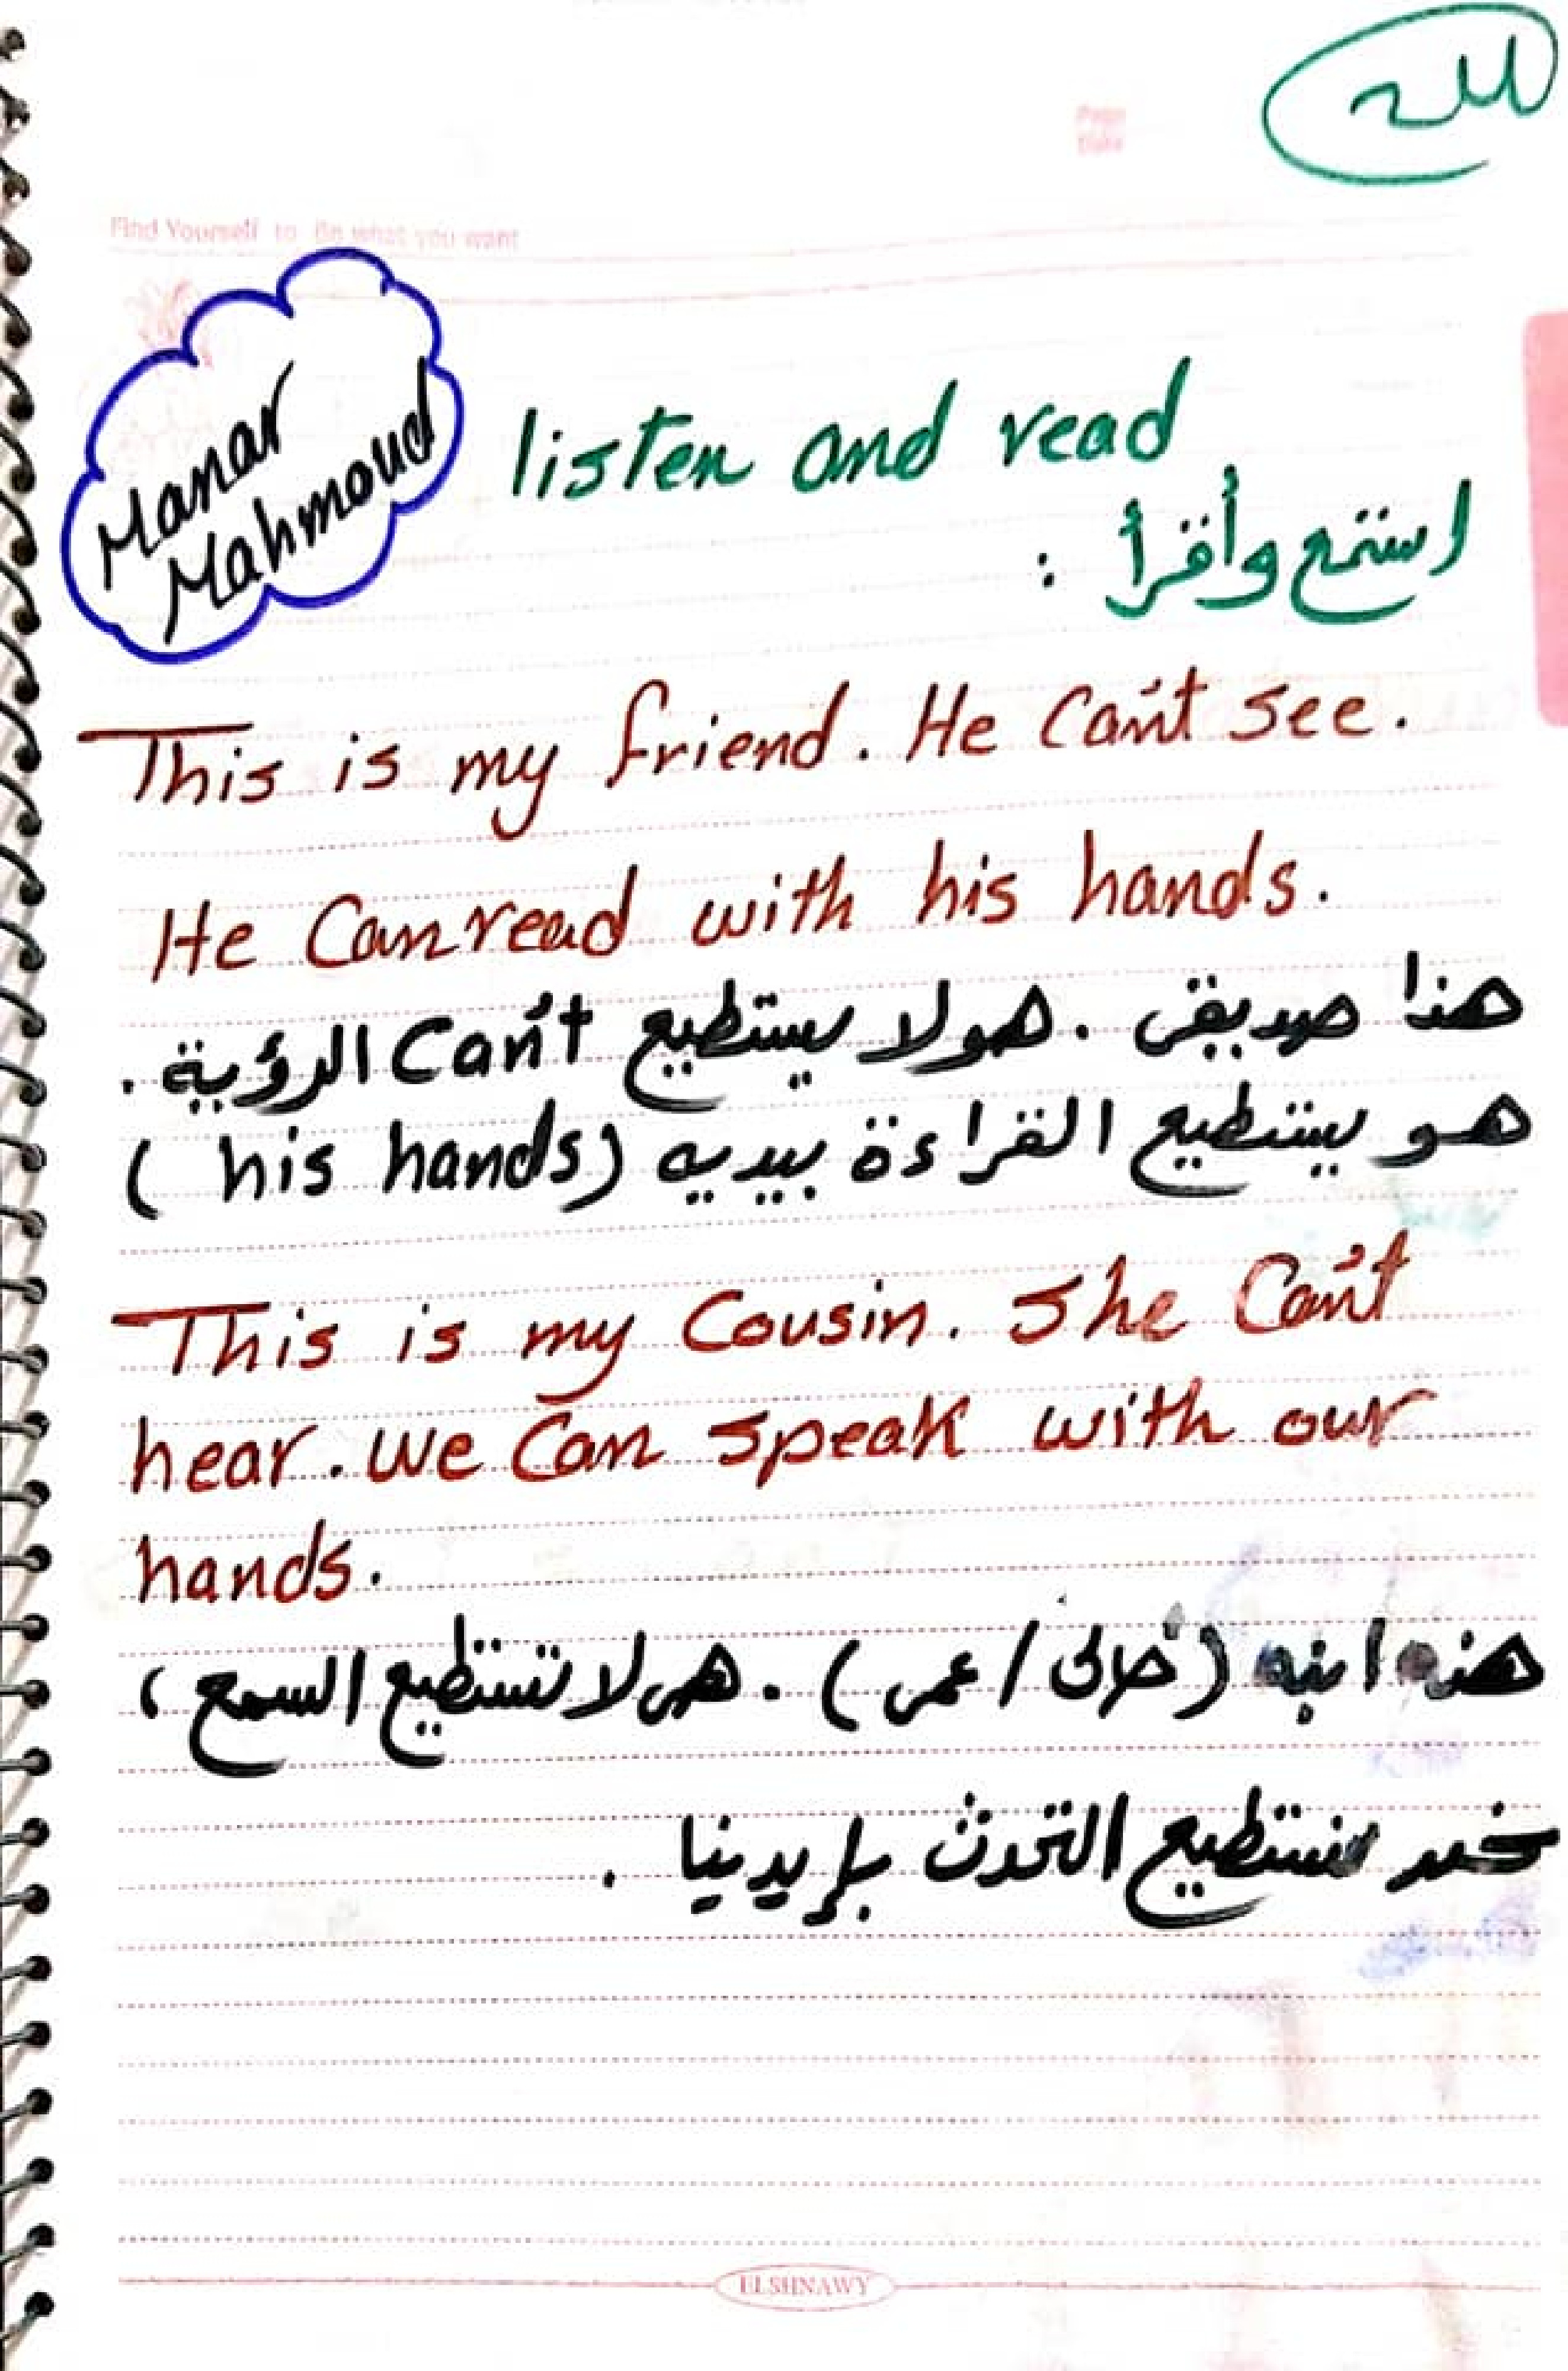 لله
Page
Date
Find Yourself to Be what you want
Manar
Mahmoud
listen and read
استمع وأقرأ :
This is my friend. He Can't see.
He Can read with his hands.
هذا صديقى . هو لا يستطيع Can't الرؤية .
هو يستطيع القراءة بيديه (his hands)
This is my Cousin. She Can't
hear. We Can speak with our
hands.
هذه ابنه (خالى / عمى) . هى لا تستطيع السمع ،
نستطيع التحدث بإيدينا .
ELSHNAWY